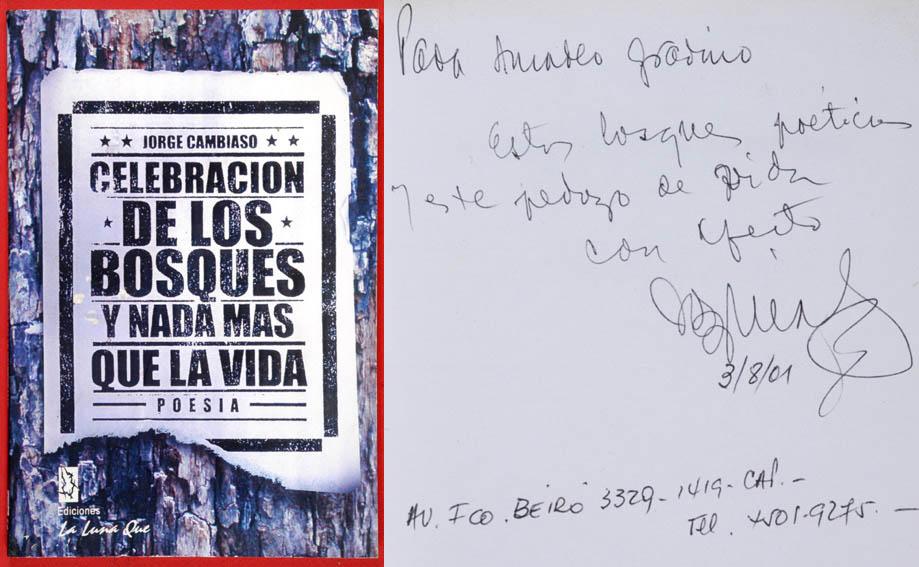 JORGE CAMBIASO
CELEBRACION
DE LOS
BOSQUES
Y NADA MAS
QUE LA VIDA
POESIA
Ediciones
La Luna Que
Para Amadeo Gravino
Estos bosques poéticos
y este pedazo de vida
con afecto
3/8/01
AV. FCO. BEIRÓ 3329-1419-CAP.-
Tel. 4501-9275.-